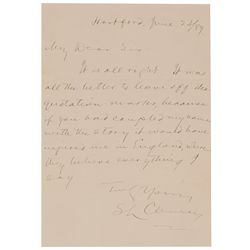 Hartford, June 24/89
My Dear Sir
It is all right. It was
all the better to leave off the
quotation-marks, because
if you had coupled my name
with the story it would have
injured me in England, where
they believe everything I
say
Truly Yours
S L Clemens